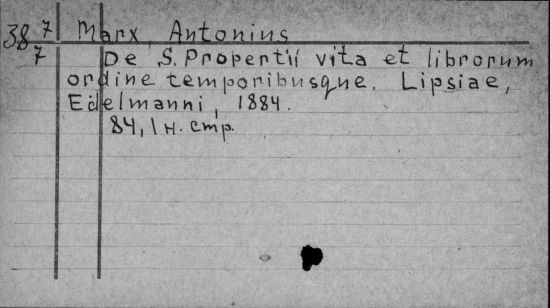 38 7/7 Marx, Antonius
De S. Propertii vita et librorum
ordine temporibusque. Lipsiae,
Edelmanni, 1884.
84, 1 н. стр.